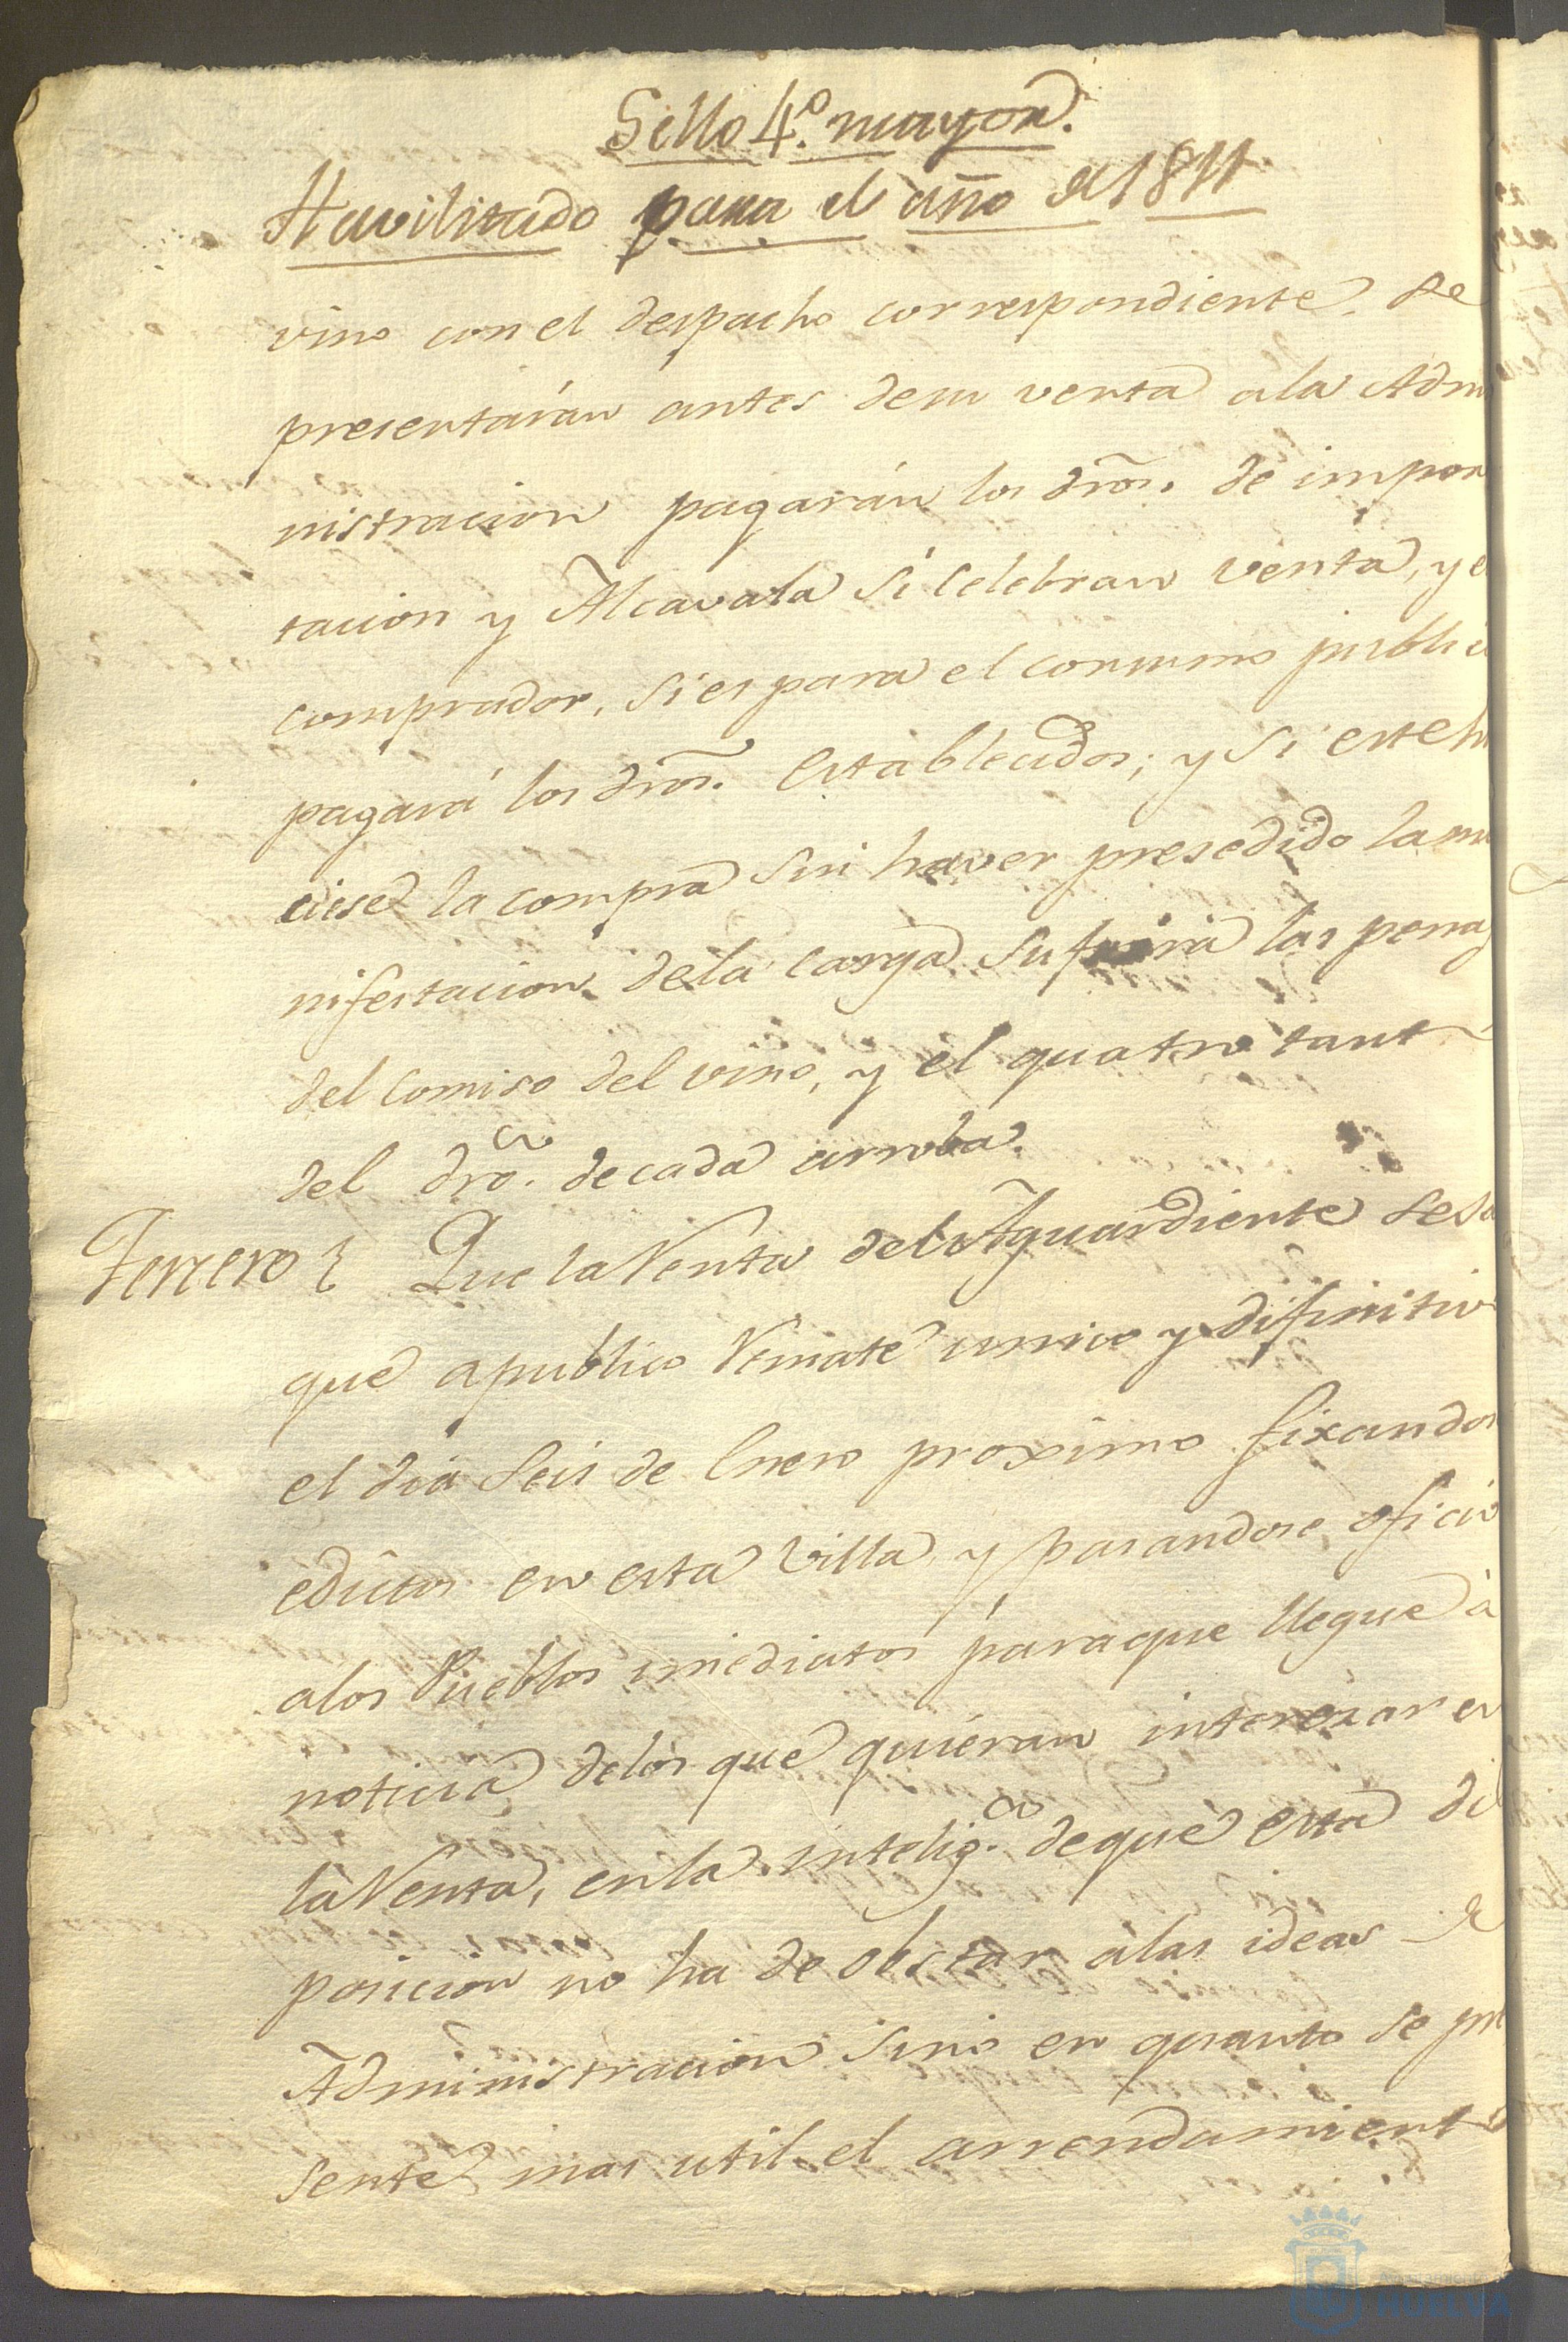 Sello 4.º mayor.
Havilitado para el año de 1811
vino con el despacho correspondiente, se
presentarán antes desu venta ala Admi
nistracion pagarán los dros. de impor
tacion y Alcavala si selebran venta, y el
comprador, si es para el consumo public
pagará los dros. establecidos; y si este hi
ciese la compra sin haver presedido la ma
nifestacion dela carga sufrirá las penas
del comiso del vino, y el quatro tant
del dro. de cada arroba.
Terzero Que la Renta del Aguardiente se sa
que apublico Remate unico y difinitiv
el dia seis de Enero proximo fixandos
edictos en esta Villa, y pasandose oficio
alos Pueblos imediatos paraque llegue á
noticia delos que quieran interezar en
la Renta, en la intelig.ª deque esta dis
posicion no ha de obstar alas ideas de
Administracion sino en quanto se pre
sente mas util el arrendamiento
Ayuntamiento de
HUELVA